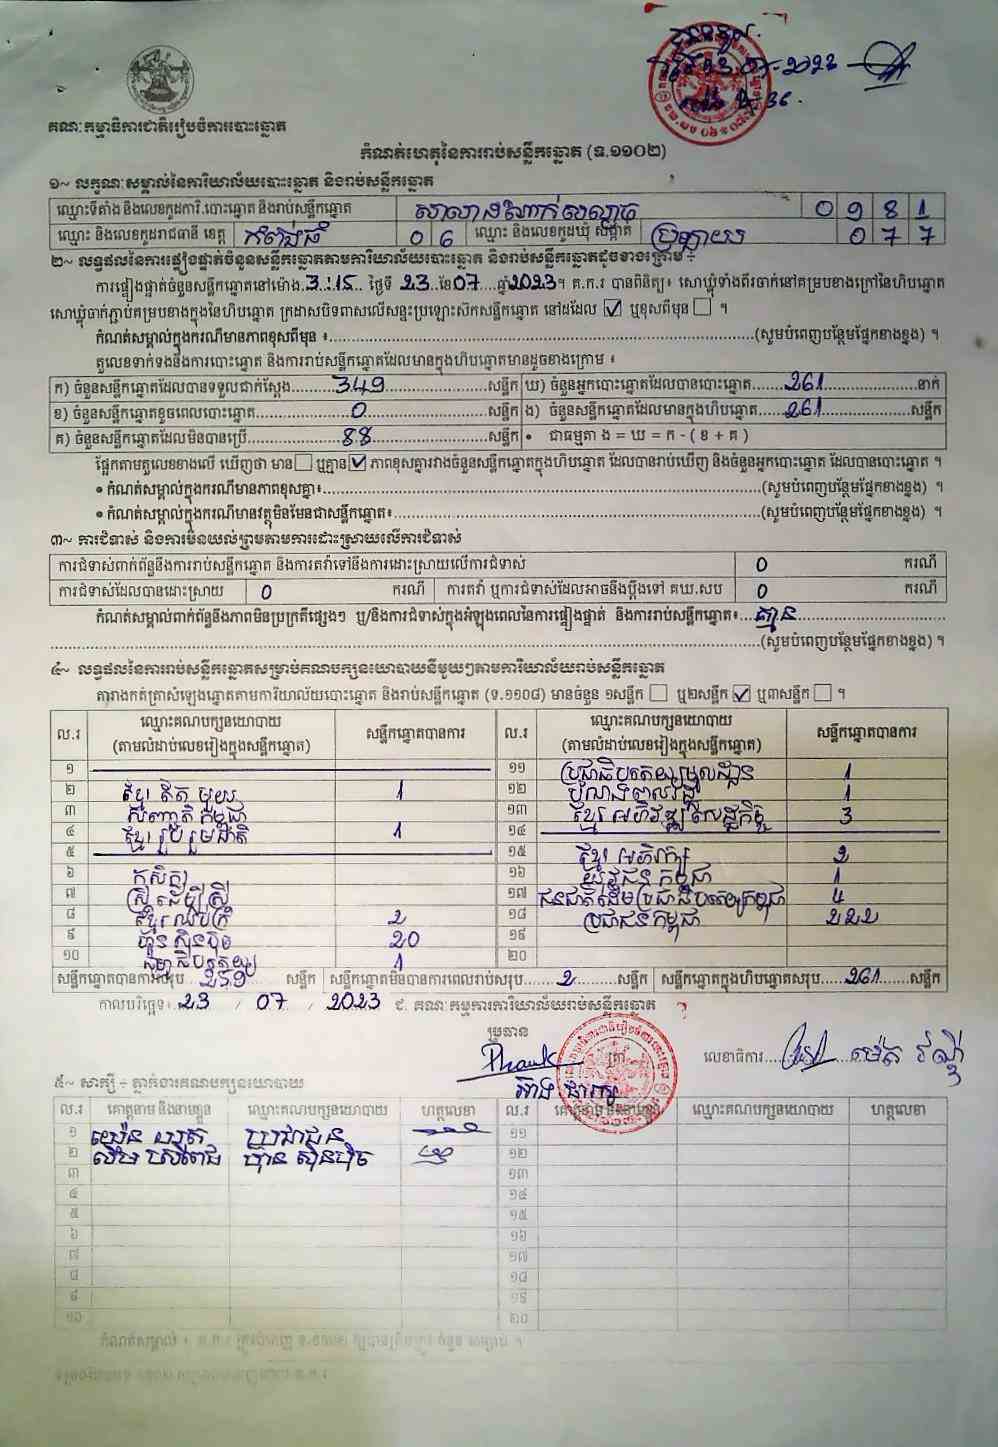 គណៈកម្មាធិការជាតិរៀបចំការបោះឆ្នោត
កំណត់ហេតុនៃការរាប់សន្លឹកឆ្នោត (ទ.១១០២)
១~ លក្ខណៈសម្គាល់នៃការិយាល័យបោះឆ្នោត និងរាប់សន្លឹកឆ្នោត
ឈ្មោះទីតាំង និងលេខកូដការិ.បោះឆ្នោត និងរាប់សន្លឹកឆ្នោត 0 9 8 1
ឈ្មោះ និងលេខកូដរាជធានី ខេត្ត កំពង់ធំ 0 6 ឈ្មោះ និងលេខកូដឃុំ សង្កាត់ ប្រឡាយ 0 7 7
២~ លទ្ធផលនៃការផ្ទៀងផ្ទាត់ចំនួនសន្លឹកឆ្នោតតាមការិយាល័យបោះឆ្នោត និងរាប់សន្លឹកឆ្នោតដូចខាងក្រោម ÷
ការផ្ទៀងផ្ទាត់ចំនួនសន្លឹកឆ្នោតនៅម៉ោង 3:15 ថ្ងៃទី 23 ខែ 07 ឆ្នាំ 2023។ គ.ក.រ បានពិនិត្យ៖ សោឃ្លុំទាំងពីរចាក់នៅគម្របខាងក្រៅនៃហិបឆ្នោត
សោឃ្លុំចាក់ភ្ជាប់គម្របខាងក្នុងនៃហិបឆ្នោត ក្រដាសបិទពាសលើសន្ទះប្រឡោះស៊កសន្លឹកឆ្នោត នៅដដែល ☑ ឬខុសពីមុន ☐ ។
កំណត់សម្គាល់ក្នុងករណីមានភាពខុសពីមុន ៖ (សូមបំពេញបន្ថែមផ្នែកខាងខ្នង) ។
តួលេខទាក់ទងនឹងការបោះឆ្នោត និងការរាប់សន្លឹកឆ្នោតដែលមានក្នុងហិបឆ្នោតមានដូចខាងក្រោម ៖
ក) ចំនួនសន្លឹកឆ្នោតដែលបានទទួលជាក់ស្តែង 349 សន្លឹក ឃ) ចំនួនអ្នកបោះឆ្នោតដែលបានបោះឆ្នោត 261 នាក់
ខ) ចំនួនសន្លឹកឆ្នោតខូចពេលបោះឆ្នោត 0 សន្លឹក ង) ចំនួនសន្លឹកឆ្នោតដែលមានក្នុងហិបឆ្នោត 261 សន្លឹក
គ) ចំនួនសន្លឹកឆ្នោតដែលមិនបានប្រើ 88 សន្លឹក • ជាធម្មតា ង = ឃ = ក - ( ខ + គ )
ផ្អែកតាមតួលេខខាងលើ ឃើញថា មាន ☐ ឬគ្មាន ☑ ភាពខុសគ្នារវាងចំនួនសន្លឹកឆ្នោតក្នុងហិបឆ្នោត ដែលបានរាប់ឃើញ និងចំនួនអ្នកបោះឆ្នោត ដែលបានបោះឆ្នោត ។
• កំណត់សម្គាល់ក្នុងករណីមានភាពខុសគ្នា៖ (សូមបំពេញបន្ថែមផ្នែកខាងខ្នង) ។
• កំណត់សម្គាល់ក្នុងករណីមានវត្ថុមិនមែនជាសន្លឹកឆ្នោត៖ (សូមបំពេញបន្ថែមផ្នែកខាងខ្នង) ។
៣~ ការជំទាស់ និងការមិនយល់ព្រមតាមការដោះស្រាយលើការជំទាស់
ការជំទាស់ពាក់ព័ន្ធនឹងការរាប់សន្លឹកឆ្នោត និងការតវ៉ាទៅនឹងការដោះស្រាយលើការជំទាស់ 0 ករណី
ការជំទាស់ដែលបានដោះស្រាយ 0 ករណី ការតវ៉ា ឬការជំទាស់ដែលអាចនឹងប្តឹងទៅ គឃ.សប 0 ករណី
កំណត់សម្គាល់ពាក់ព័ន្ធនឹងភាពមិនប្រក្រតីផ្សេងៗ ឬ/និងការជំទាស់ក្នុងអំឡុងពេលនៃការផ្ទៀងផ្ទាត់ និងការរាប់សន្លឹកឆ្នោត៖ គ្មាន
(សូមបំពេញបន្ថែមផ្នែកខាងខ្នង) ។
៤~ លទ្ធផលនៃការរាប់សន្លឹកឆ្នោតសម្រាប់គណបក្សនយោបាយនីមួយៗតាមការិយាល័យរាប់សន្លឹកឆ្នោត
តារាងកត់ត្រាសំឡេងឆ្នោតតាមការិយាល័យបោះឆ្នោត និងរាប់សន្លឹកឆ្នោត (ទ.១១០៨) មានចំនួន ១សន្លឹក ☐ ឬ២សន្លឹក ☑ ឬ៣សន្លឹក ☐ ។
ល.រ ឈ្មោះគណបក្សនយោបាយ (តាមលំដាប់លេខរៀងក្នុងសន្លឹកឆ្នោត) សន្លឹកឆ្នោតបានការ ល.រ ឈ្មោះគណបក្សនយោបាយ (តាមលំដាប់លេខរៀងក្នុងសន្លឹកឆ្នោត) សន្លឹកឆ្នោតបានការ
១ ១១ ប្រជាធិបតេយ្យមូលដ្ឋាន 1
២ ខ្មែរតែមួយ 1 ១២ 1
៣ សញ្ជាតិកម្ពុជា ១៣ ខ្មែរអភិវឌ្ឍសេដ្ឋកិច្ច 3
៤ ខ្មែររួបរួមជាតិ 1 ១៤
៥ ១៥ ខ្មែរអភិរក្ស 2
៦ កសិករ ១៦ យុវជនកម្ពុជា 1
៧ ស្ត្រីដើម្បីស្ត្រី ១៧ ជនជាតិដើមប្រជាធិបតេយ្យកម្ពុជា 4
៨ ខ្មែរឈប់ក្រ 2 ១៨ ប្រជាជនកម្ពុជា 222
៩ ហ៊្វុនស៊ិនប៉ិច 20 ១៩
១០ 1 ២០
សន្លឹកឆ្នោតបានការសរុប 259 សន្លឹក សន្លឹកឆ្នោតមិនបានការពេលរាប់សរុប 2 សន្លឹក សន្លឹកឆ្នោតក្នុងហិបឆ្នោតសរុប 261 សន្លឹក
កាលបរិច្ឆេទ៖ 23 / 07 / 2023 ជ. គណៈកម្មការការិយាល័យរាប់សន្លឹកឆ្នោត
ប្រធាន
លេខាធិការ
៥~ សាក្សី ÷ ភ្នាក់ងារគណបក្សនយោបាយ
ល.រ គោត្តនាម និងនាមខ្លួន ឈ្មោះគណបក្សនយោបាយ ហត្ថលេខា ល.រ គោត្តនាម និងនាមខ្លួន ឈ្មោះគណបក្សនយោបាយ ហត្ថលេខា
១ ប្រជាជន ១១
២ ហ៊្វុនស៊ិនប៉ិច ១២
៣ ១៣
៤ ១៤
៥ ១៥
៦ ១៦
៧ ១៧
៨ ១៨
៩ ១៩
១០ ២០